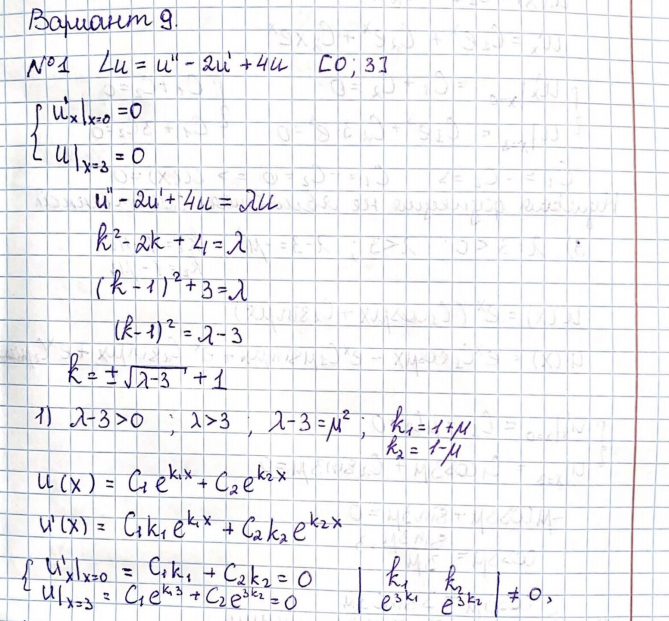 Вариант 9.
№1 Lu = u'' - 2u' + 4u [0; 3]
{ u'ₓ|ₓ₌₀ = 0
u|ₓ₌₃ = 0
u'' - 2u' + 4u = λu
k² - 2k + 4 = λ
(k - 1)² + 3 = λ
(k-1)² = λ - 3
k = ±√(λ-3) + 1
1) λ-3>0 ; λ>3 ; λ-3 = μ² ; k₁ = 1+μ
k₂ = 1-μ
u(x) = C₁e^{k₁x} + C₂e^{k₂x}
u'(x) = C₁k₁e^{k₁x} + C₂k₂e^{k₂x}
{ u'ₓ|ₓ₌₀ = C₁k₁ + C₂k₂ = 0 | k₁ k₂ |
u|ₓ₌₃ = C₁e^{k₁3} + C₂e^{3k₂} = 0 | e^{3k₁} e^{3k₂} | ≠ 0,